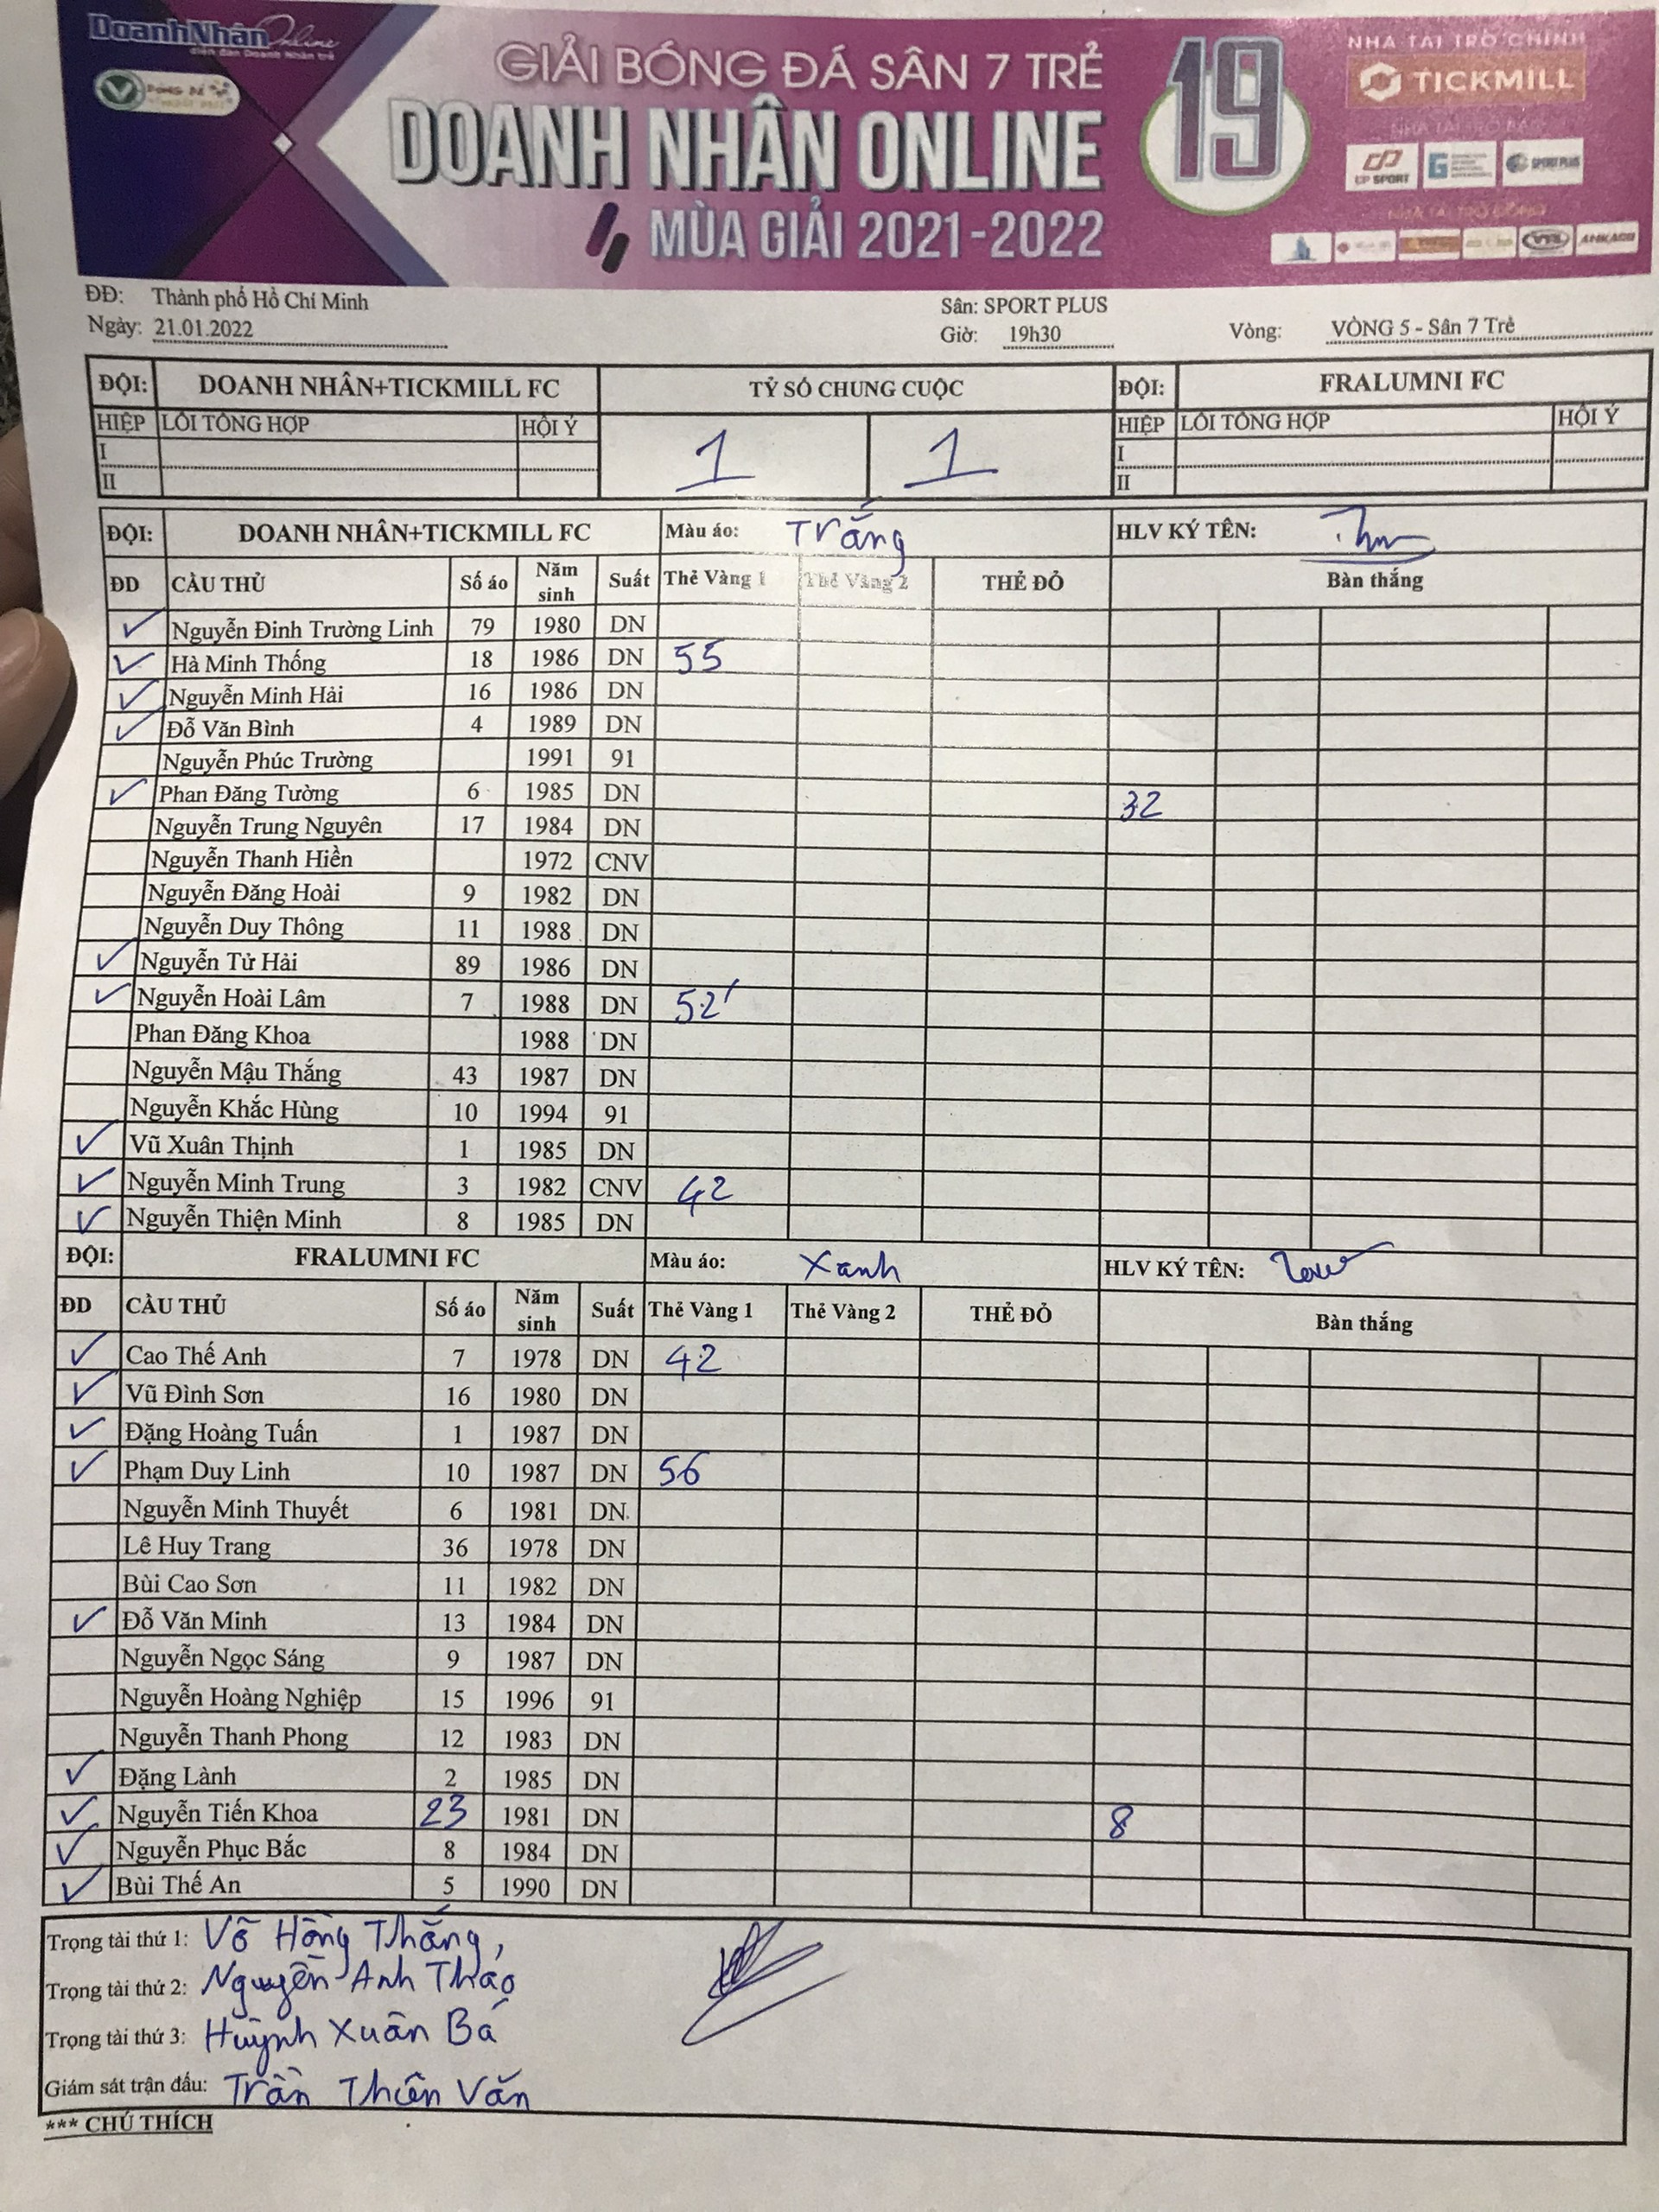 DoanhNhân Online
diễn đàn Doanh Nhân trẻ
GIẢI BÓNG ĐÁ SÂN 7 TRẺ
DOANH NHÂN ONLINE
MÙA GIẢI 2021-2022
19
NHÀ TÀI TRỢ CHÍNH
TICKMILL
CP SPORT
SPORT PLUS
ANKACO
ĐĐ: Thành phố Hồ Chí Minh Sân: SPORT PLUS
Ngày: 21.01.2022 Giờ: 19h30 Vòng: VÒNG 5 - Sân 7 Trẻ
ĐỘI: DOANH NHÂN+TICKMILL FC TỶ SỐ CHUNG CUỘC ĐỘI: FRALUMNI FC
HIỆP LỖI TỔNG HỢP HỘI Ý 1 1 HIỆP LỖI TỔNG HỢP HỘI Ý
I I
II II
ĐỘI: DOANH NHÂN+TICKMILL FC Màu áo: Trắng HLV KÝ TÊN:
ĐD CẦU THỦ Số áo Năm sinh Suất Thẻ Vàng 1 Thẻ Vàng 2 THẺ ĐỎ Bàn thắng
✓ Nguyễn Đinh Trường Linh 79 1980 DN
✓ Hà Minh Thống 18 1986 DN 55
✓ Nguyễn Minh Hải 16 1986 DN
✓ Đỗ Văn Bình 4 1989 DN
Nguyễn Phúc Trường 1991 91
✓ Phan Đăng Tường 6 1985 DN 32
Nguyễn Trung Nguyên 17 1984 DN
Nguyễn Thanh Hiền 1972 CNV
Nguyễn Đăng Hoài 9 1982 DN
Nguyễn Duy Thông 11 1988 DN
✓ Nguyễn Tử Hải 89 1986 DN
✓ Nguyễn Hoài Lâm 7 1988 DN 52'
Phan Đăng Khoa 1988 DN
Nguyễn Mậu Thắng 43 1987 DN
Nguyễn Khắc Hùng 10 1994 91
✓ Vũ Xuân Thịnh 1 1985 DN
✓ Nguyễn Minh Trung 3 1982 CNV 42
✓ Nguyễn Thiện Minh 8 1985 DN
ĐỘI: FRALUMNI FC Màu áo: Xanh HLV KÝ TÊN:
ĐD CẦU THỦ Số áo Năm sinh Suất Thẻ Vàng 1 Thẻ Vàng 2 THẺ ĐỎ Bàn thắng
✓ Cao Thế Anh 7 1978 DN 42
✓ Vũ Đình Sơn 16 1980 DN
✓ Đặng Hoàng Tuấn 1 1987 DN
✓ Phạm Duy Linh 10 1987 DN 56
Nguyễn Minh Thuyết 6 1981 DN
Lê Huy Trang 36 1978 DN
Bùi Cao Sơn 11 1982 DN
✓ Đỗ Văn Minh 13 1984 DN
Nguyễn Ngọc Sáng 9 1987 DN
Nguyễn Hoàng Nghiệp 15 1996 91
Nguyễn Thanh Phong 12 1983 DN
✓ Đặng Lành 2 1985 DN
✓ Nguyễn Tiến Khoa 23 1981 DN 8
✓ Nguyễn Phục Bắc 8 1984 DN
✓ Bùi Thế An 5 1990 DN
Trọng tài thứ 1: Võ Hồng Thắng,
Trọng tài thứ 2: Nguyễn Anh Thảo
Trọng tài thứ 3: Huỳnh Xuân Bá
Giám sát trận đấu: Trần Thiên Văn
*** CHÚ THÍCH